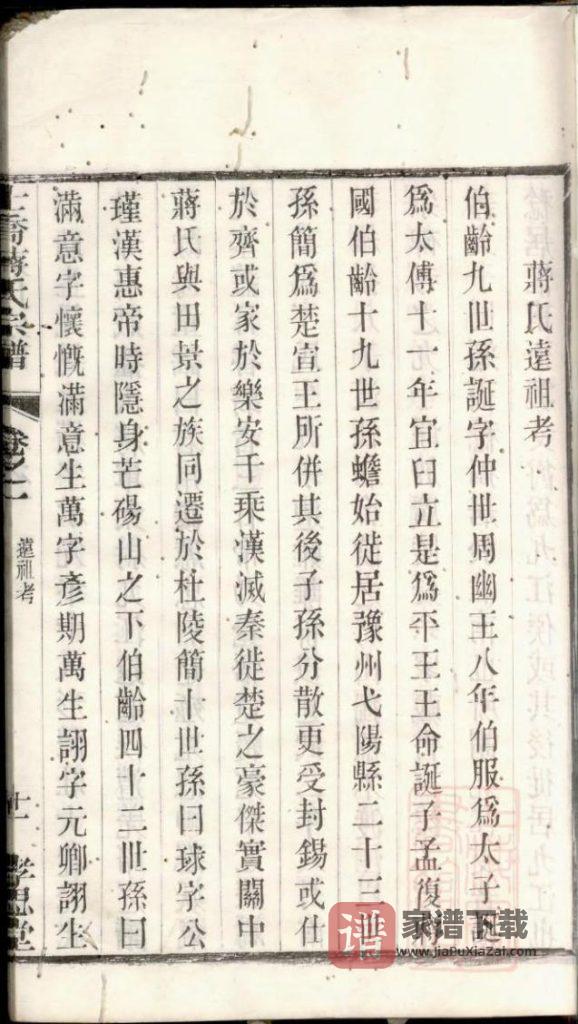 蔣氏遠祖考
伯齡九世孫誕字仲世周幽王八年伯服爲太子誕
爲太傅十一年宜臼立是爲平王王命誕子孟復
國伯齡十九世孫蟾始徙居豫州弋陽縣二十三世
孫簡爲楚宣王所併其後子孫分散更受封錫或仕
於齊或家於樂安千乘漢滅秦徙楚之豪傑實關中
蔣氏與田景之族同遷於杜陵簡十世孫曰球字公
瑾漢惠帝時隱身芒碭山之下伯齡四十二世孫曰
滿意字懷慨滿意生萬字彥期萬生詡字元卿詡生
蔣氏宗譜 卷之一 遠祖考 十一 孝思堂
谱 家谱下载
www.JiaPuXiaZai.com